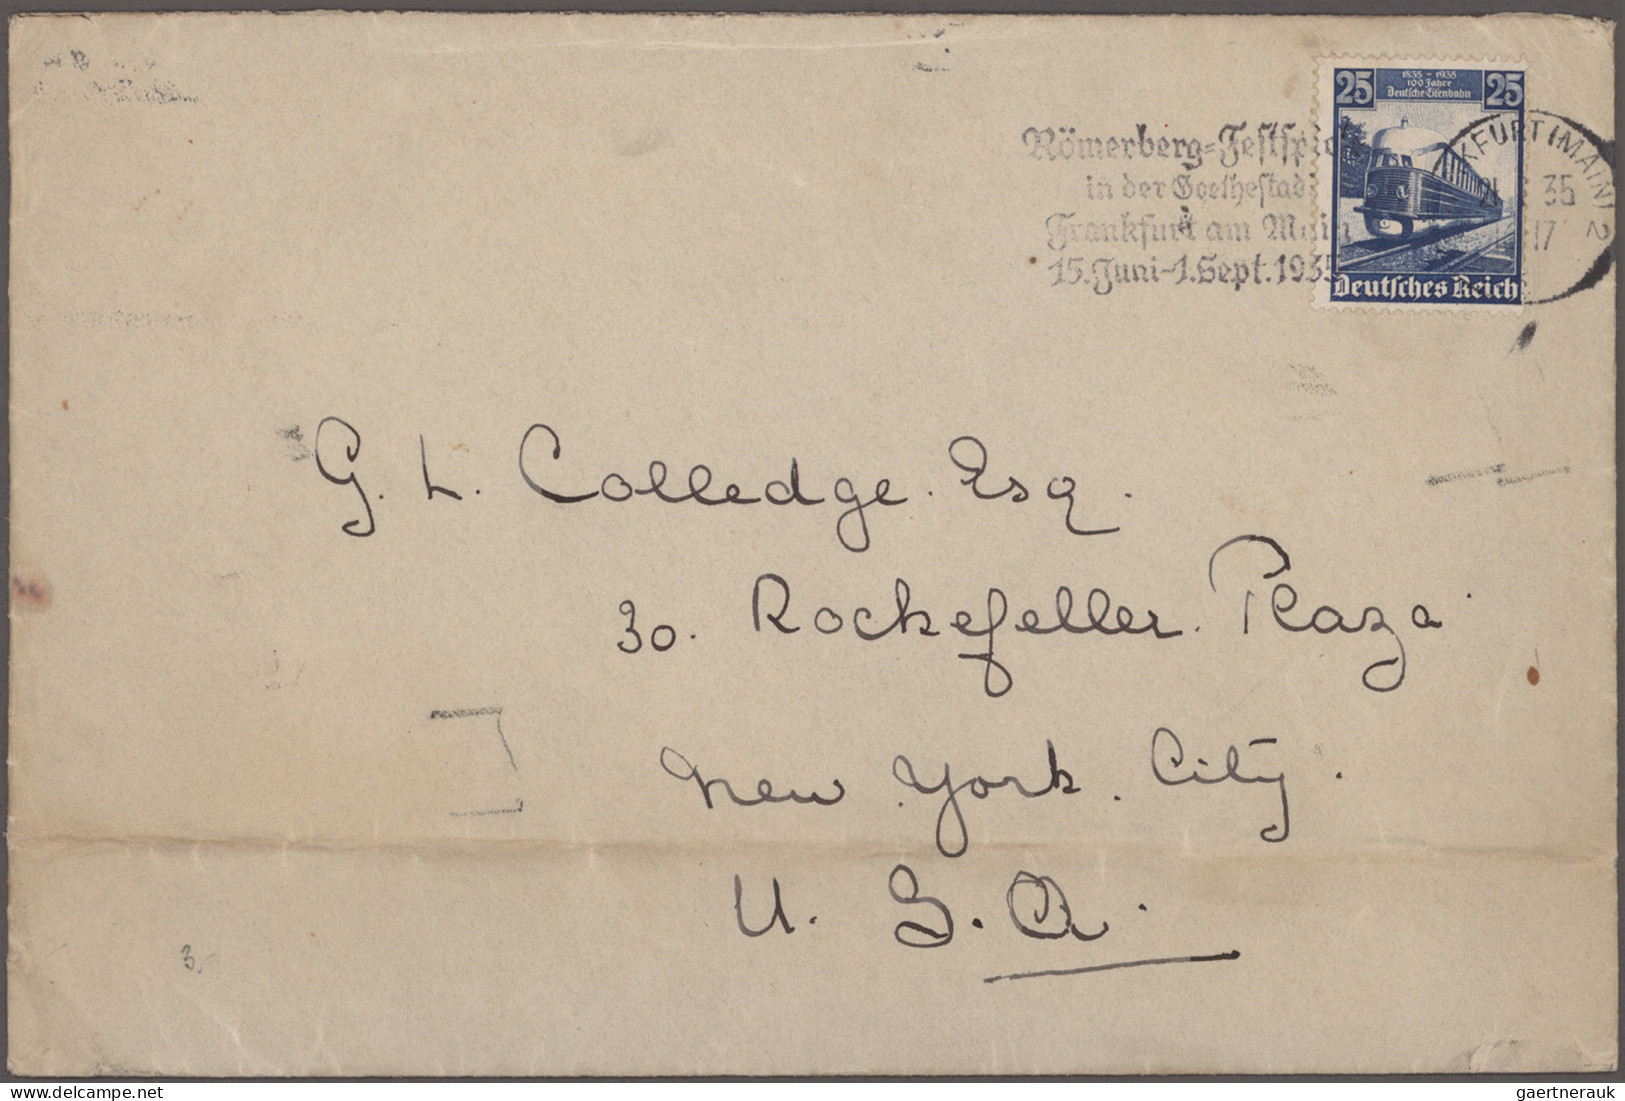 25 1835 - 1935 25
100 Jahre
Deutsche Eisenbahn
Deutsches Reich
Römerberg=Festspie
in der Goethestad
Frankfurt am Main
15. Juni-1. Sept. 1935
KFURT (MAIN) 2
21 35
17
G. L. Colledge. Esq.
30. Rockefeller. Plaza
New York. City.
U. S. A.
3,-
gaertnerauk